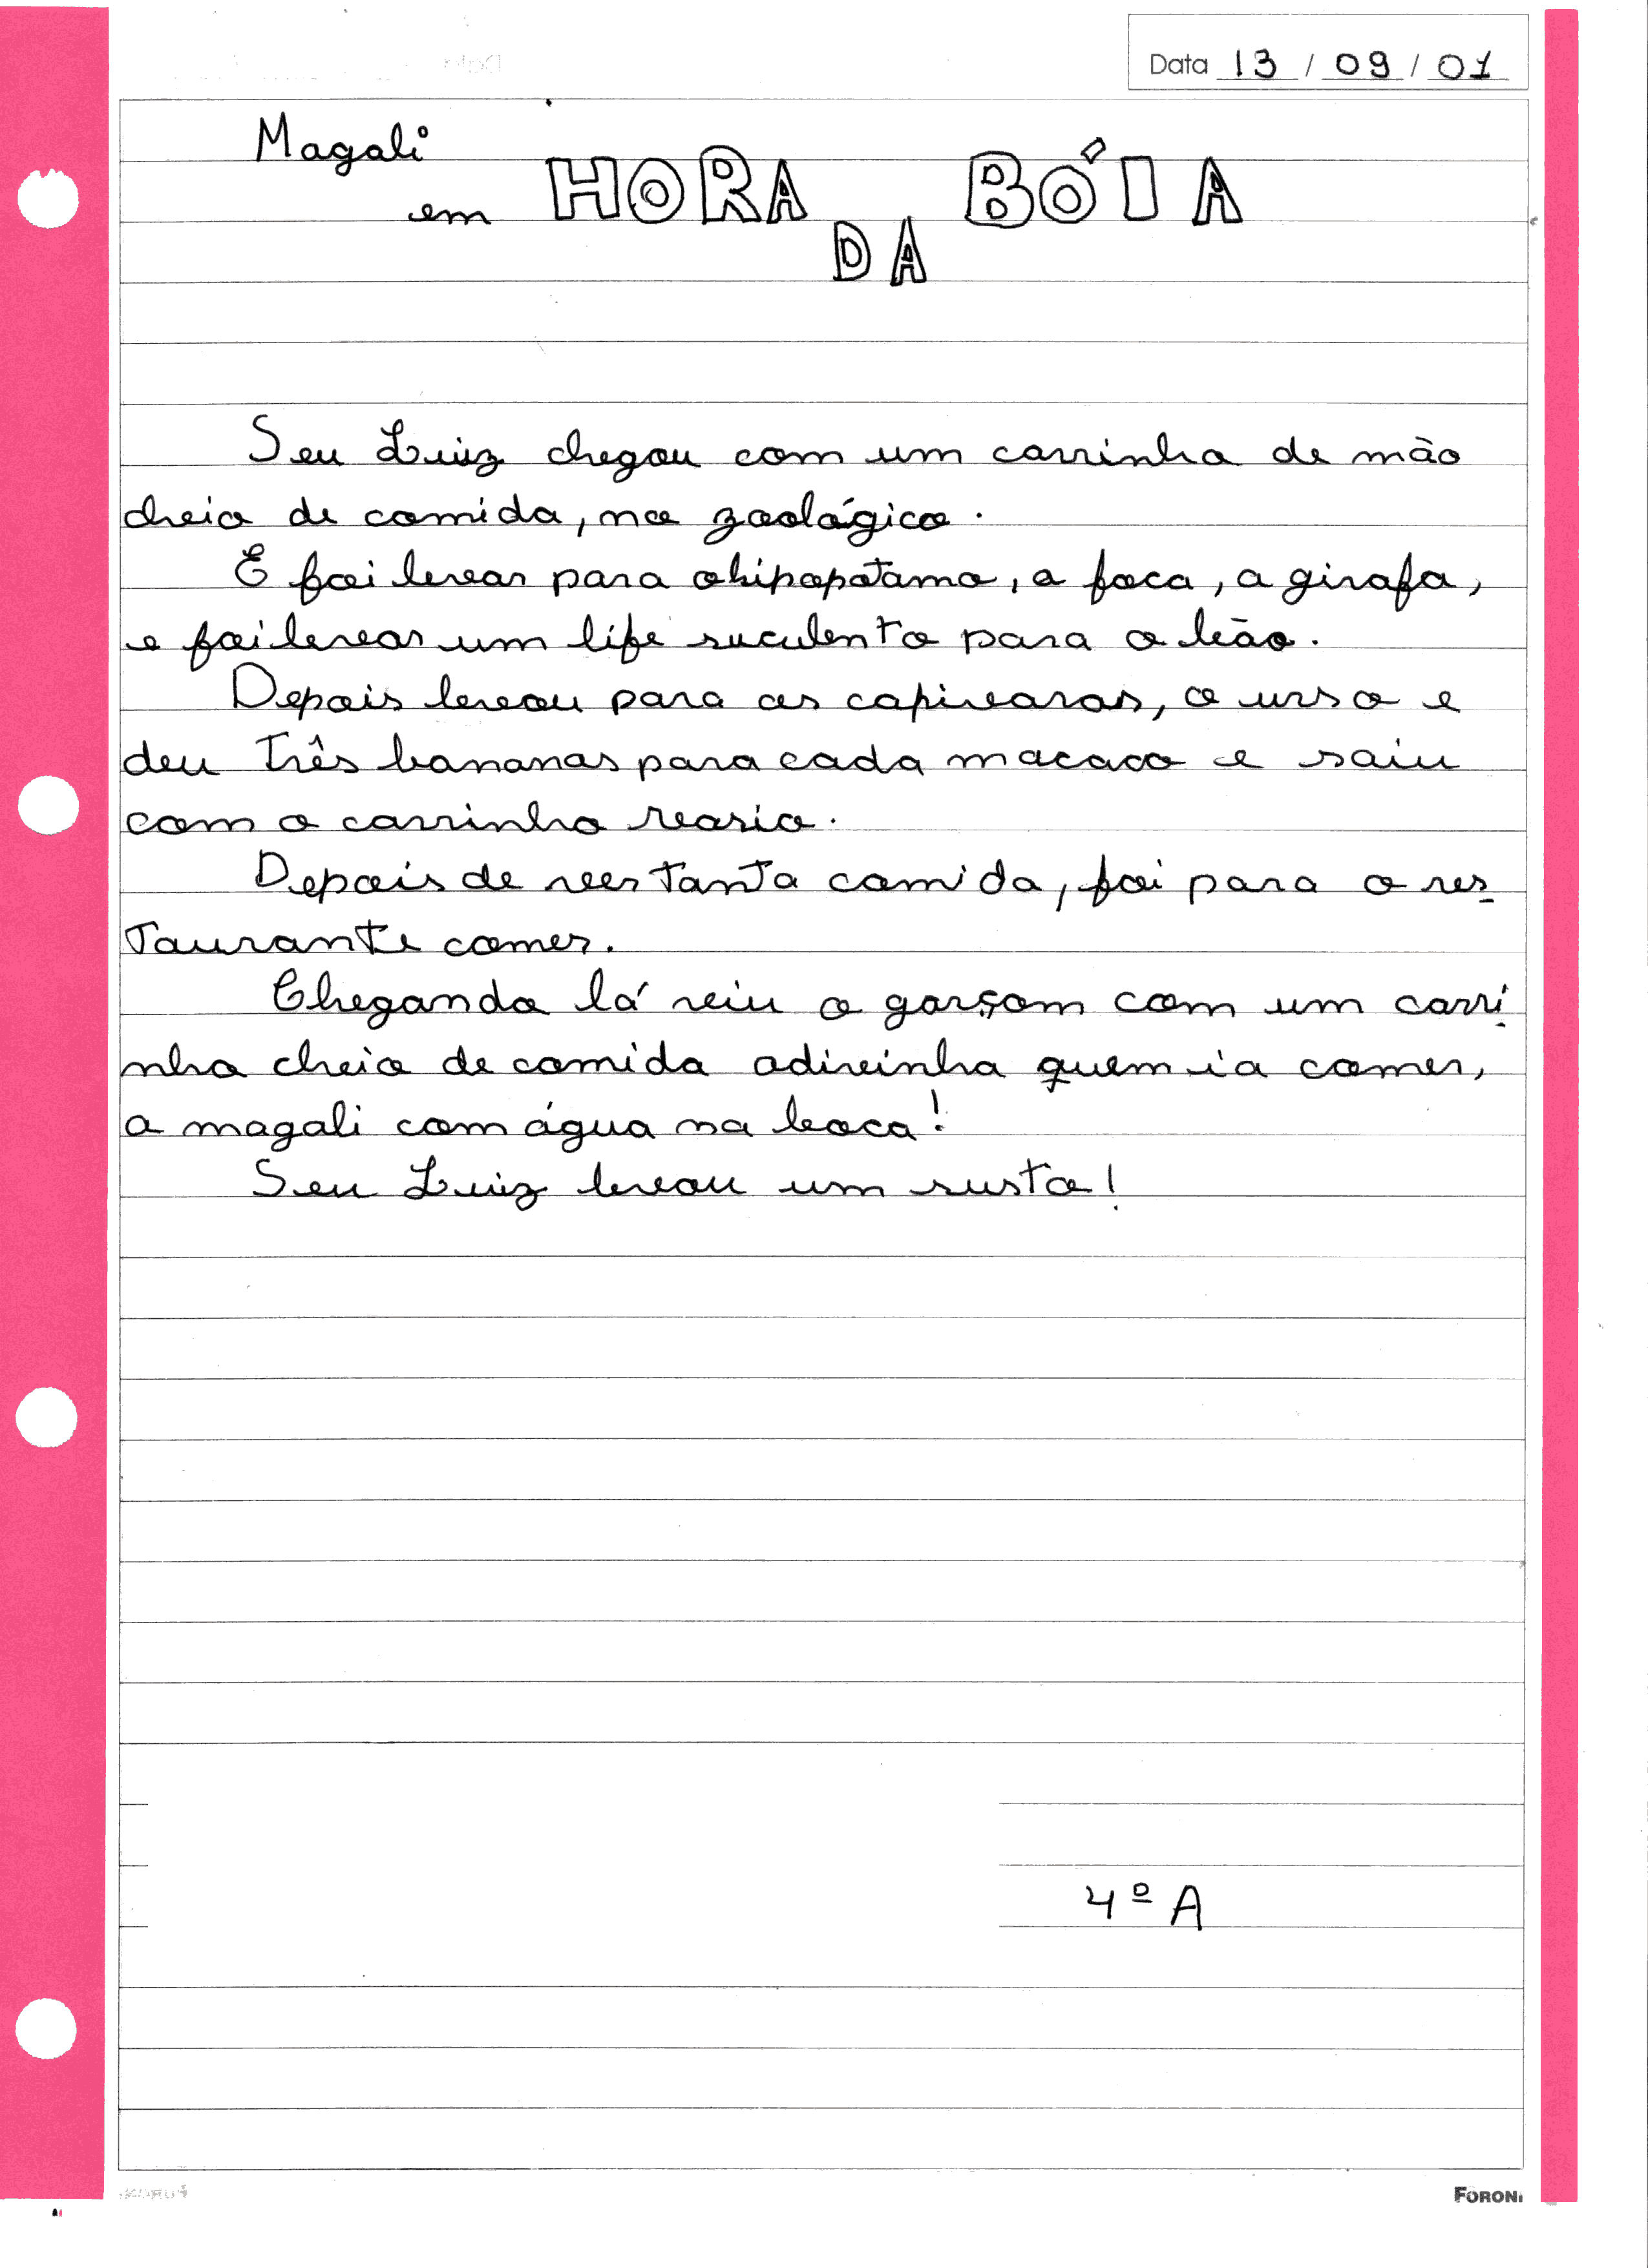 Data 13 / 09 / 01
Magali
em HORA DA BÓIA
Seu Luiz chegou com um carrinho de mão
cheio de comida, no zoológico.
E foi levar para ohipopotamo, a foca, a girafa,
e foi levar um bife suculento para o leão.
Depois levou para as capivaras, o urso e
deu três bananas para cada macaco e saiu
com o carrinho vasio.
Depois de ver tanta comida, foi para o res-
taurante comer.
Chegando lá veio o garçom com um carri-
nho cheio de comida adivinha quem ia comer,
a magali com água na boca!
Seu Luiz levou um susto!
4º A
FORONI